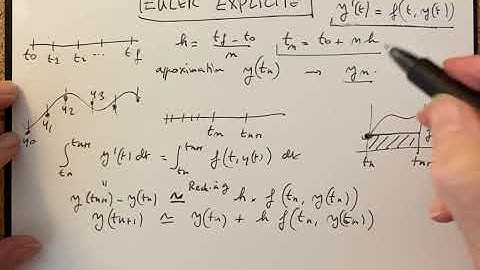 EULER EXPLICITE
y'(t) = f(t, y(t))
t0 t1 t2 ... tf
h = (tf - t0)/n
tn = t0 + n h
aproximation y(tn) → yn.
y0 y1 y2 y3
tn tn+1
∫_{tn}^{tn+1} y'(t) dt = ∫_{tn}^{tn+1} f(t, y(t)) dt
tn tn+1
y(tn+1) - y(tn) ≃ h × f(tn, y(tn))
y(tn+1) ≃ y(tn) + h f(tn, y(tn))